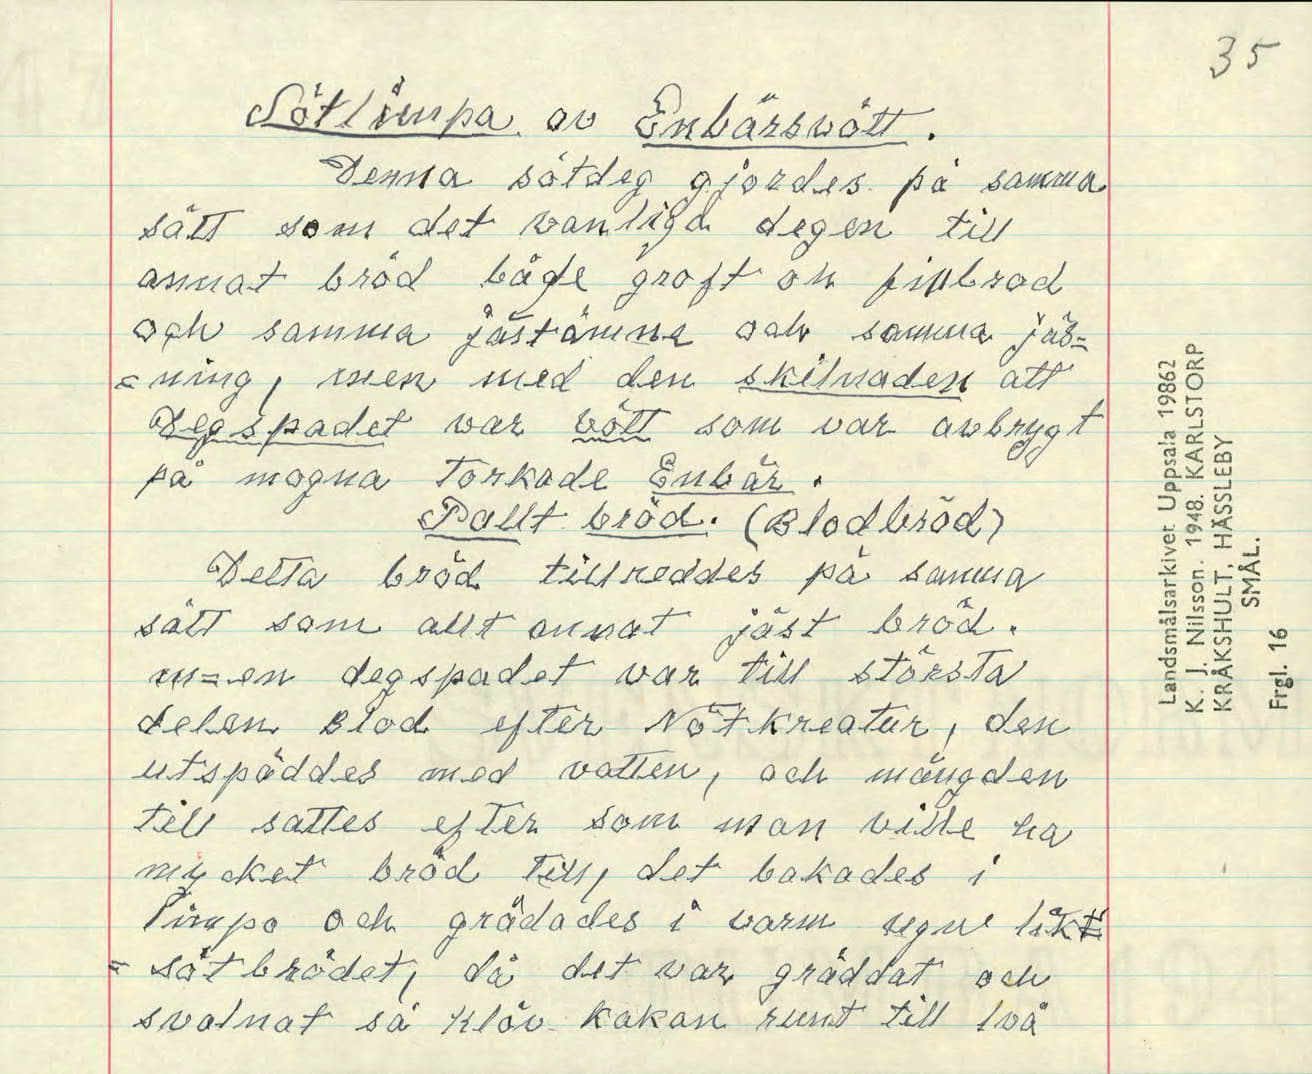 35
Sötlimpa av Enbärsvött.
Denna sötdeg gjordes på samma
sätt som det vanliga degen till
annat bröd både groft oh finbrod
och samma jästämne och samma jäs=
=ning, men med den skilnaden att
Degspadet var vött som var avbrygt
på mogna torkade Enbär.
Pallt bröd. (Blodbröd)
Detta bröd tillreddes på samma
sätt som allt annat jäst bröd.
m=en degspadet var till största
delen Blod efter Nötkreatur, den
utspäddes med vatten, och mängden
till sattes efter som man ville ha
mycket bröd till, det bakades i
limpo och grädades i varm ugn likt
=sötbrödet, då det var gräddat och
svalnat så klöv kakan runt till två
Landsmålsarkivet Uppsala 19862
K. J. Nilsson. 1948. KARLSTORP
KRÅKSHULT, HÄSSLEBY
SMÅL.
Frgl. 16